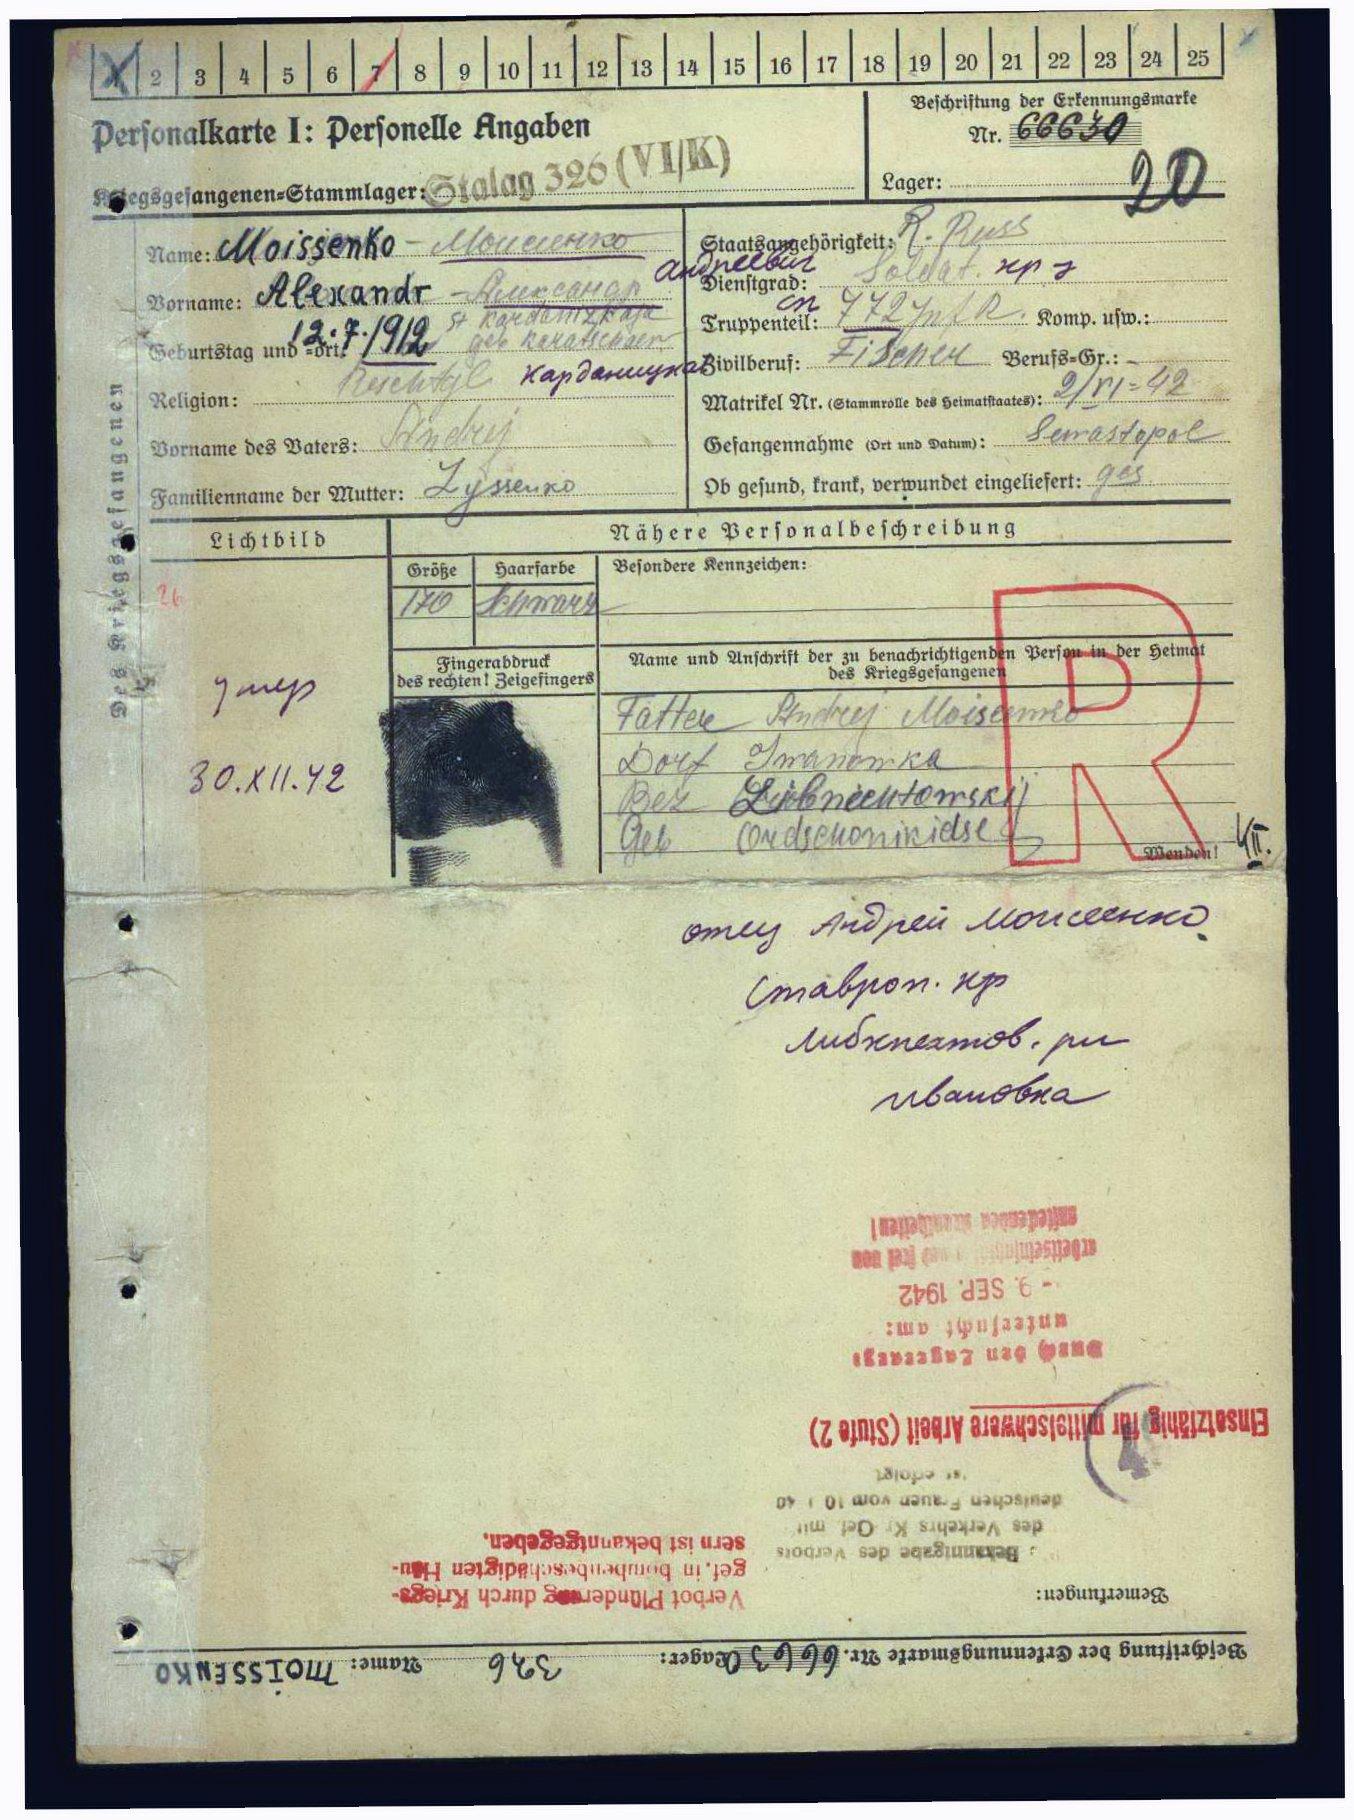 1 2 3 4 5 6 7 8 9 10 11 12 13 14 15 16 17 18 19 20 21 22 23 24 25
Personalkarte I: Personelle Angaben
Kriegsgefangenen=Stammlager: Stalag 326 (VI/K)
Beschriftung der Erkennungsmarke
Nr. 66630
Lager:
20
Name: Moissenko - Моисеенко
Vorname: Alexandr - Александр Андреевич
12.7.1912 st Kardanizkaja
Geburtstag und =ort:
Карданицкая
Religion:
Vorname des Vaters: Andrej
Familienname der Mutter: Lyssenko
Staatsangehörigkeit: R. Russ
Dienstgrad: Soldat. кр-з
Truppenteil: сп 772 Inf R. Komp. usw.:
Zivilberuf: Fischer Berufs=Gr.: -
Matrikel Nr. (Stammrolle des Heimatstaates): 2/VI=42
Gefangennahme (Ort und Datum): Sewastopol
Ob gesund, krank, verwundet eingeliefert: ges.
Des Kriegsgefangenen
Lichtbild
Nähere Personalbeschreibung
Größe Haarfarbe Besondere Kennzeichen:
170 Schwarz
26
Fingerabdruck
des rechten! Zeigefingers
Name und Anschrift der zu benachrichtigenden Person in der Heimat
des Kriegsgefangenen
R
умер
30.XII.42
Fatter Andrej Moiseenko
Dorf Iwanowka
Bez Libnechtowskij
Geb Ordschonikidse
Wenden!
VII.
отец Андрей Моисеенко
Ставроп. кр
Либкнехтов. рн
Ивановка
Beschriftung der Erkennungsmarke Nr. 66630 Lager: 326 Name: MOISSENKO
Bemerkungen:
Verbot Plünderung durch Kriegs-
gef. in bombenbeschädigten Häu-
sern ist bekanntgegeben.
Bekanntgabe des Verbots
des Verkehrs Kr. Gef. mit
deutschen Frauen vom 10 1 40
ist erfolgt
Einsatzfähig für mittelschwere Arbeit (Stufe 2)
4
Durch den Lagerarzt
untersucht am:
- 9. SEP. 1942
arbeitseinsatzfähig und frei von
ansteckenden Krankheiten!